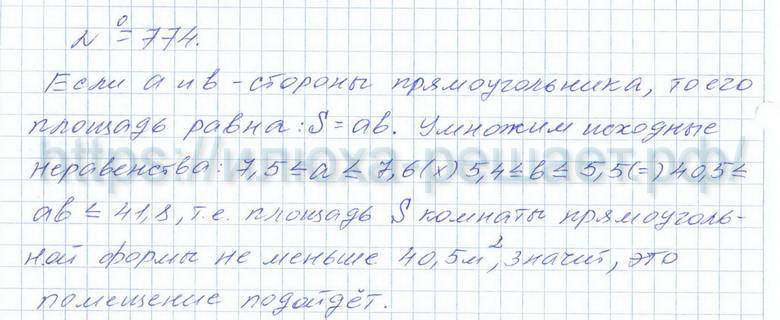 № = 774.
Если a и в - стороны прямоугольника, то его
площадь равна: S = ав. Умножим исходные
неравенства: 7,5 ≤ a ≤ 7,6 (x) 5,4 ≤ в ≤ 5,5 (=) 40,5 ≤
ав ≤ 41,8, т.е. площадь S комнаты прямоуголь-
ной формы не меньше 40,5 м², значит, это
помещение подойдёт.
https://илюха-решает.рф/